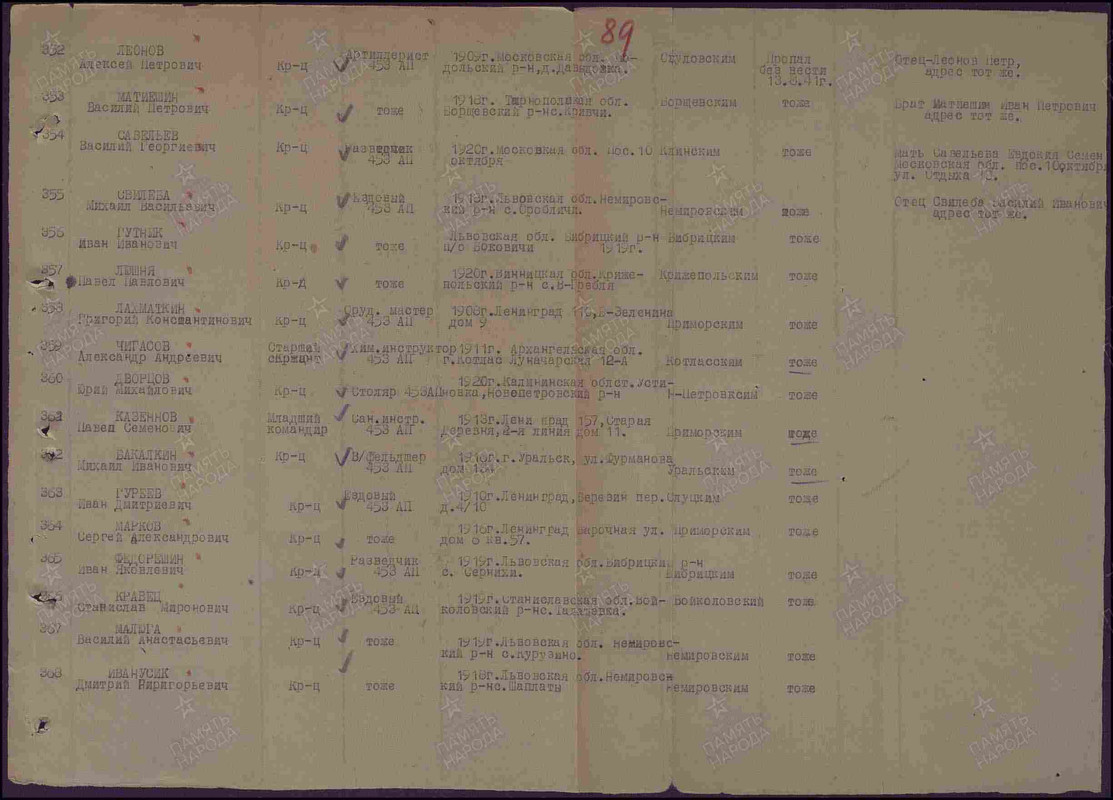 89
352 ЛЕОНОВ Алексей Петрович Кр-ц Артиллерист 453 АП 1909г.Московская обл. По-дольский р-н,д.Давыдовка. Пропал без вести 13.8.41г. Отец-Леонов Петр, адрес тот же.
353 МАТИЕШИН Василий Петрович Кр-ц тоже 1918г. Тарнопольская обл. Борщевский р-нс.Кривчи. Борщевским тоже Брат Матиешин Иван Петрович адрес тот же.
354 САВЕЛЬЕВ Василий Георгиевич Кр-ц Разведчик 453 АП 1920г.Московская обл. пос.10 октября Клинским тоже мать Савельева Евдокия Семен Московская обл. пос.10октября ул. Отдыха
355 СВИЛЕБА Михаил Васильевич Кр-ц Ездовый 453 АП 1918г.Львовская обл.Немировс-кий р-н Немировским тоже Отец Свилеба Василий Иванович адрес тот же.
356 ГУТНИК Иван Иванович Кр-ц тоже Львовская обл. Бибрицкий р-н п/о Боковичи 1919г. Бибрицким тоже
357 ЛЮШНЯ Павел Павлович Кр-ц тоже 1920г.Винницкая обл.Криже-польский р-н Крижепольским тоже
358 ЛАХМАТКИН Григорий Константинович Кр-ц Оруд. мастер 453 АП 1908г.Ленинград дом 9 Приморским тоже
359 ЧИГАСОВ Александр Андреевич Старший сержант Хим.инструктор 453 АП 1911г. Архангельская обл. г.Котлас Луначарская 12-А Котласским тоже
360 ДВОРЦОВ Юрий Михайлович Кр-ц Столяр 453АП 1920г.Калининская облст.Усти-новка,Новопетровский р-н Н-Петровксим тоже
361 КАЗЕННОВ Павел Семенович Младший командир Сан.инстр. 453 АП 1918г.Лени град 157,Старая Деревня,2-я линия дом 11. Приморским тоже
362 БАКАЛКИН Михаил Иванович Кр-ц В/Фельдшер 453 АП 1916г.г.Уральск, ул.Фурманова дом 131 Уральским тоже
363 ГУРЕЕВ Иван Дмитриевич Кр-ц Ездовый 453 АП 1910г.Ленинград,Березин пер. д.4/10 Слуцким тоже
364 МАРКОВ Сергей Александрович Кр-ц тоже 1916г.Ленинград Варочная ул. дом 6 кв.57. Приморским тоже
365 ФЕДОРЕШИН Иван Яковлевич Кр-ц Разведчик 453 АП 1919г.Львовская обл.Бибрицкий р-н с. Серники. Бибрицким тоже
366 КРАВЕЦ Станислав Миронович Кр-ц Ездовый 453 АП 1919г.Станиславская обл.Вой-коловский Войколовский тоже
367 МАЛЮГА Василий Анастасьевич Кр-ц тоже 1919г.Львовская обл. Немировс-кий р-н с.Курузино. Немировским тоже
368 ИВАНУСИК Дмитрий Ниригорьевич Кр-ц тоже 1918г.Львовская обл.Немировск кий р-нс.Шаплаты Немировским тоже